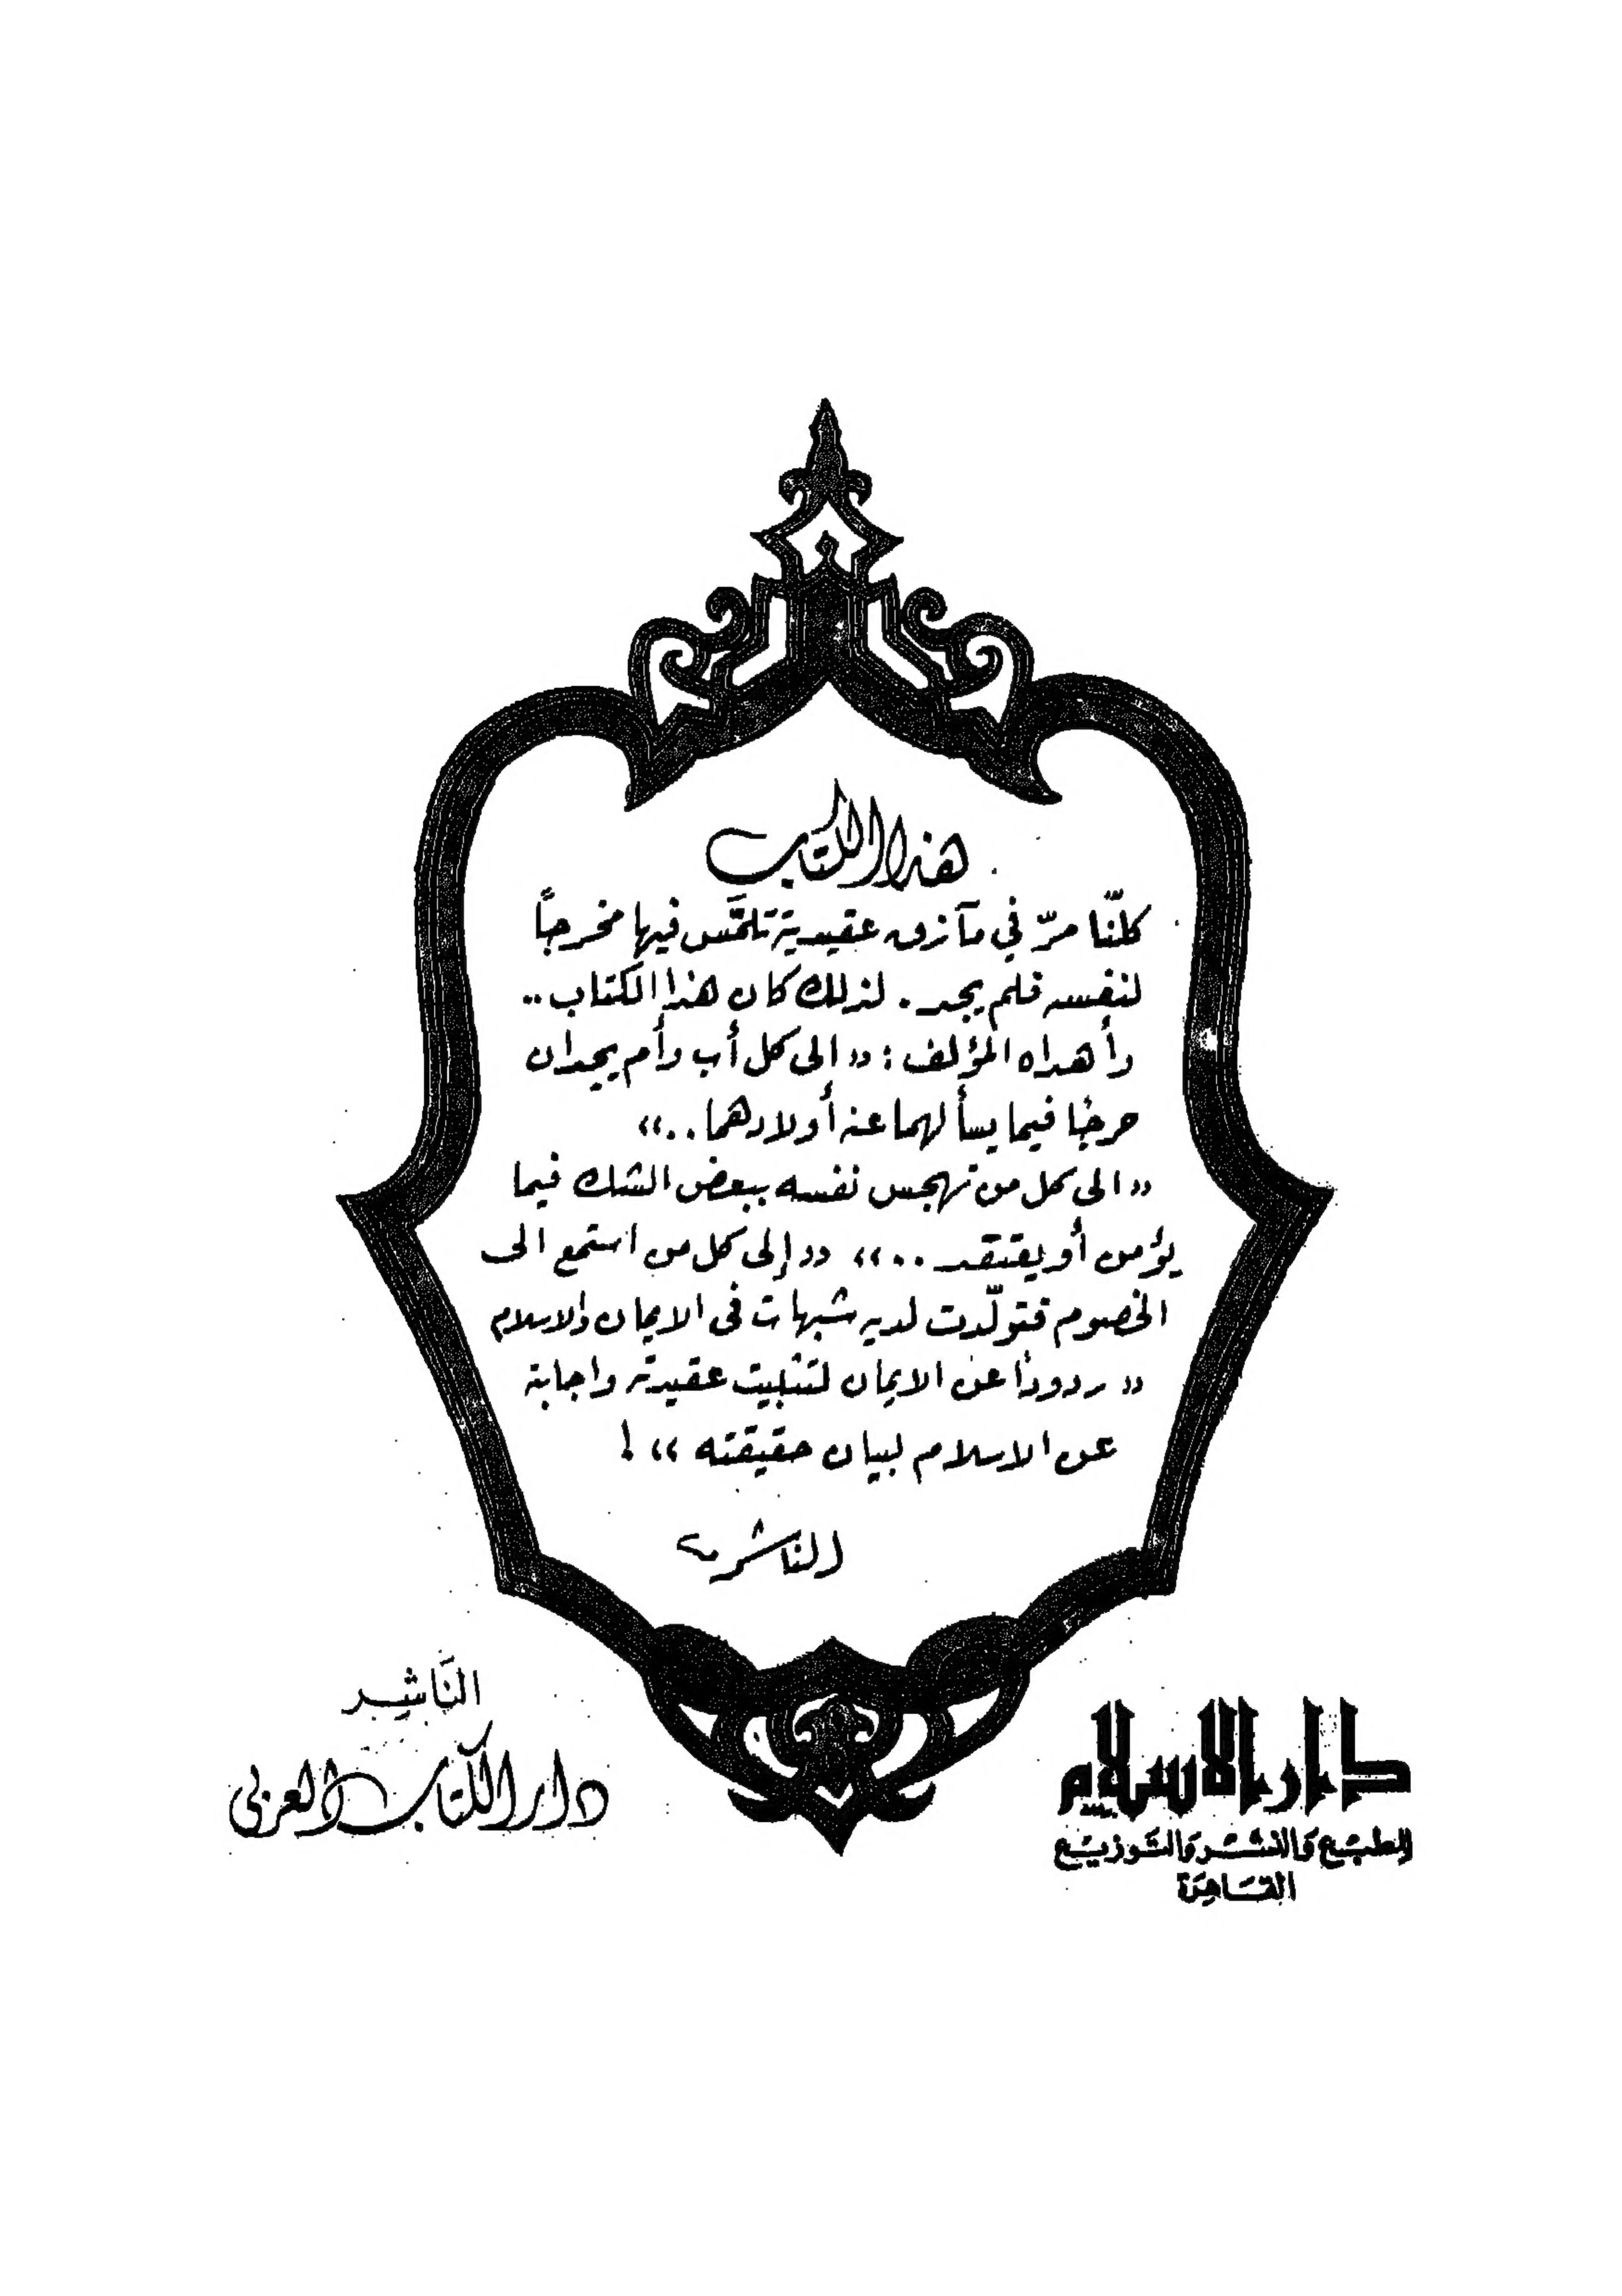 هذا الكتاب
كلّنا مرّ في مآزق عقيدية تلمَّس فيها مخرجاً
لنفسه فلم يجد. لذلك كان هذا الكتاب..
وأهداه المؤلف: «الى كل أب وأم يجدان
حرجًا فيما يسألهما عنه أولادهما..»
«الى كل من تهجس نفسه ببعض الشك فيما
يؤمن أو يعتقد..» «إلى كل من استمع الى
الخصوم فتولّدت لديه شبهات في الايمان والاسلام
«ردودًا عن الايمان لتثبيت عقيدته واجابة
عن الاسلام لبيان حقيقته»!
الناشر
دار الاسلام
للطبع والنشر والتوزيع
القاهرة
النَاشِر
دار الكتاب العربي